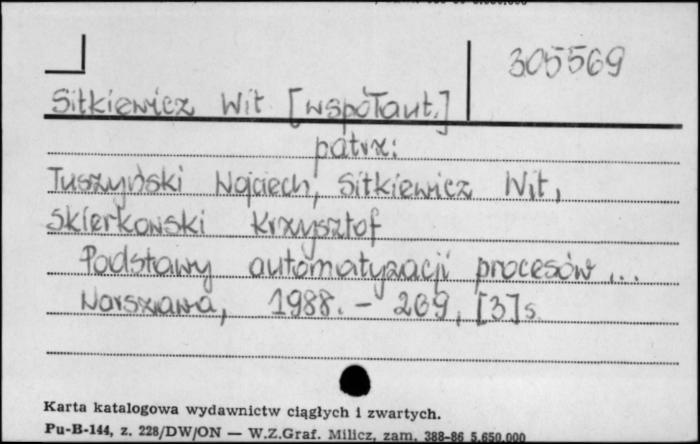 305569
Sitkiewicz Wit [współaut.]
patrz:
Tuszyński Wojciech, Sitkiewicz Wit,
Skierkowski Krzysztof
Podstawy automatyzacji procesów ...
Warszawa, 1988. - 269, [3] s.
Karta katalogowa wydawnictw ciągłych i zwartych.
Pu-B-144, z. 228/DW/ON — W.Z.Graf. Milicz, zam. 388-86 5.650.000